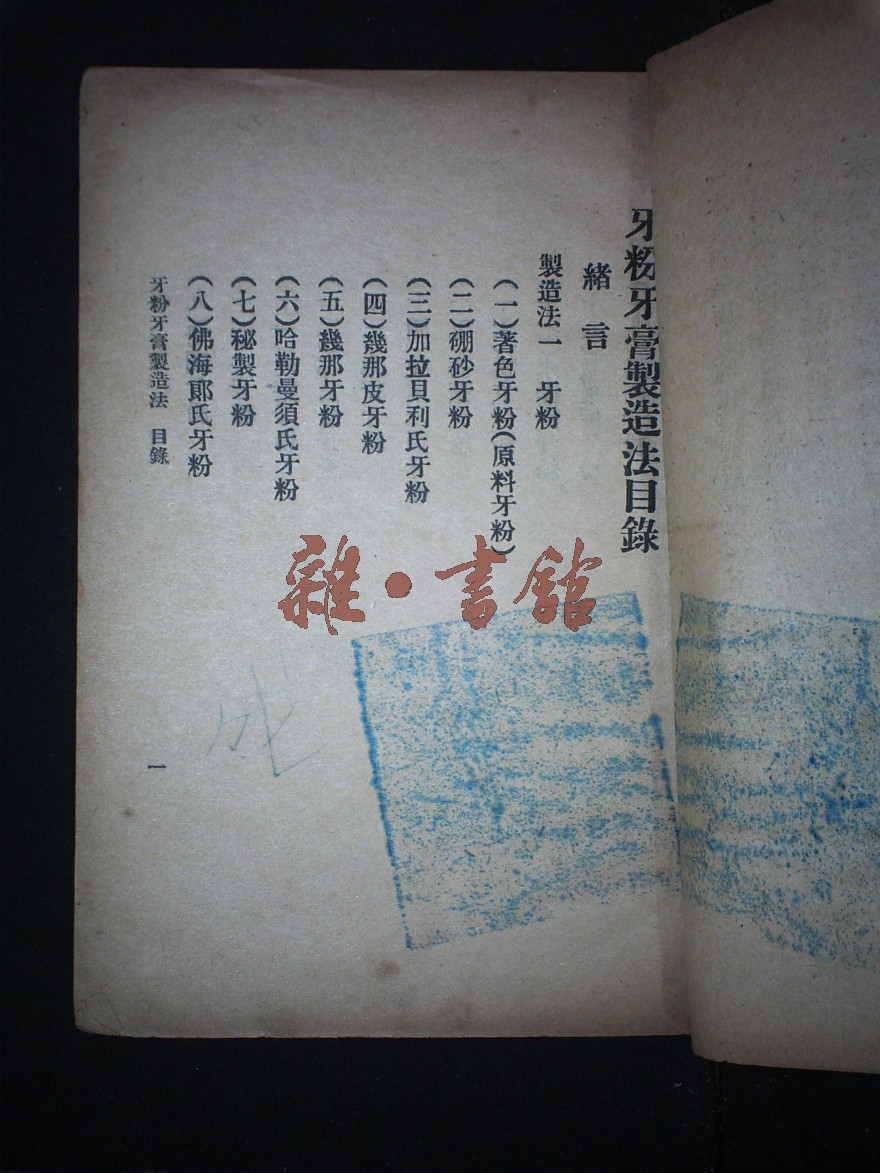 牙粉牙膏製造法目錄
緒言
製造法一　牙粉
（一）著色牙粉（原料牙粉）
（二）硼砂牙粉
（三）加拉貝利氏牙粉
（四）幾那皮牙粉
（五）幾那牙粉
（六）哈勒曼須氏牙粉
（七）秘製牙粉
（八）佛海郞氏牙粉
牙粉牙膏製造法　目錄
一
雜·書館